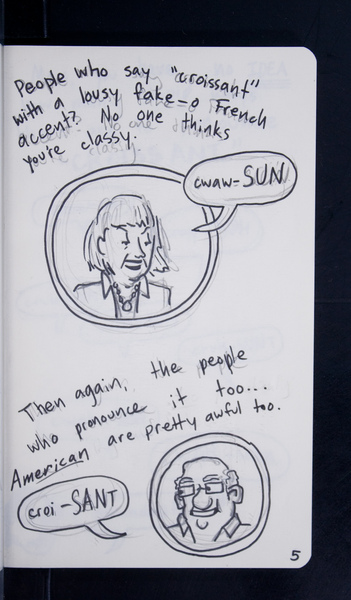 People who say "croissant"
with a lousy fake-o French
accent? No one thinks
you're classy.
cwaw-SUN
Then again, the people
who pronounce it too...
American are pretty awful too.
croi-SANT
5